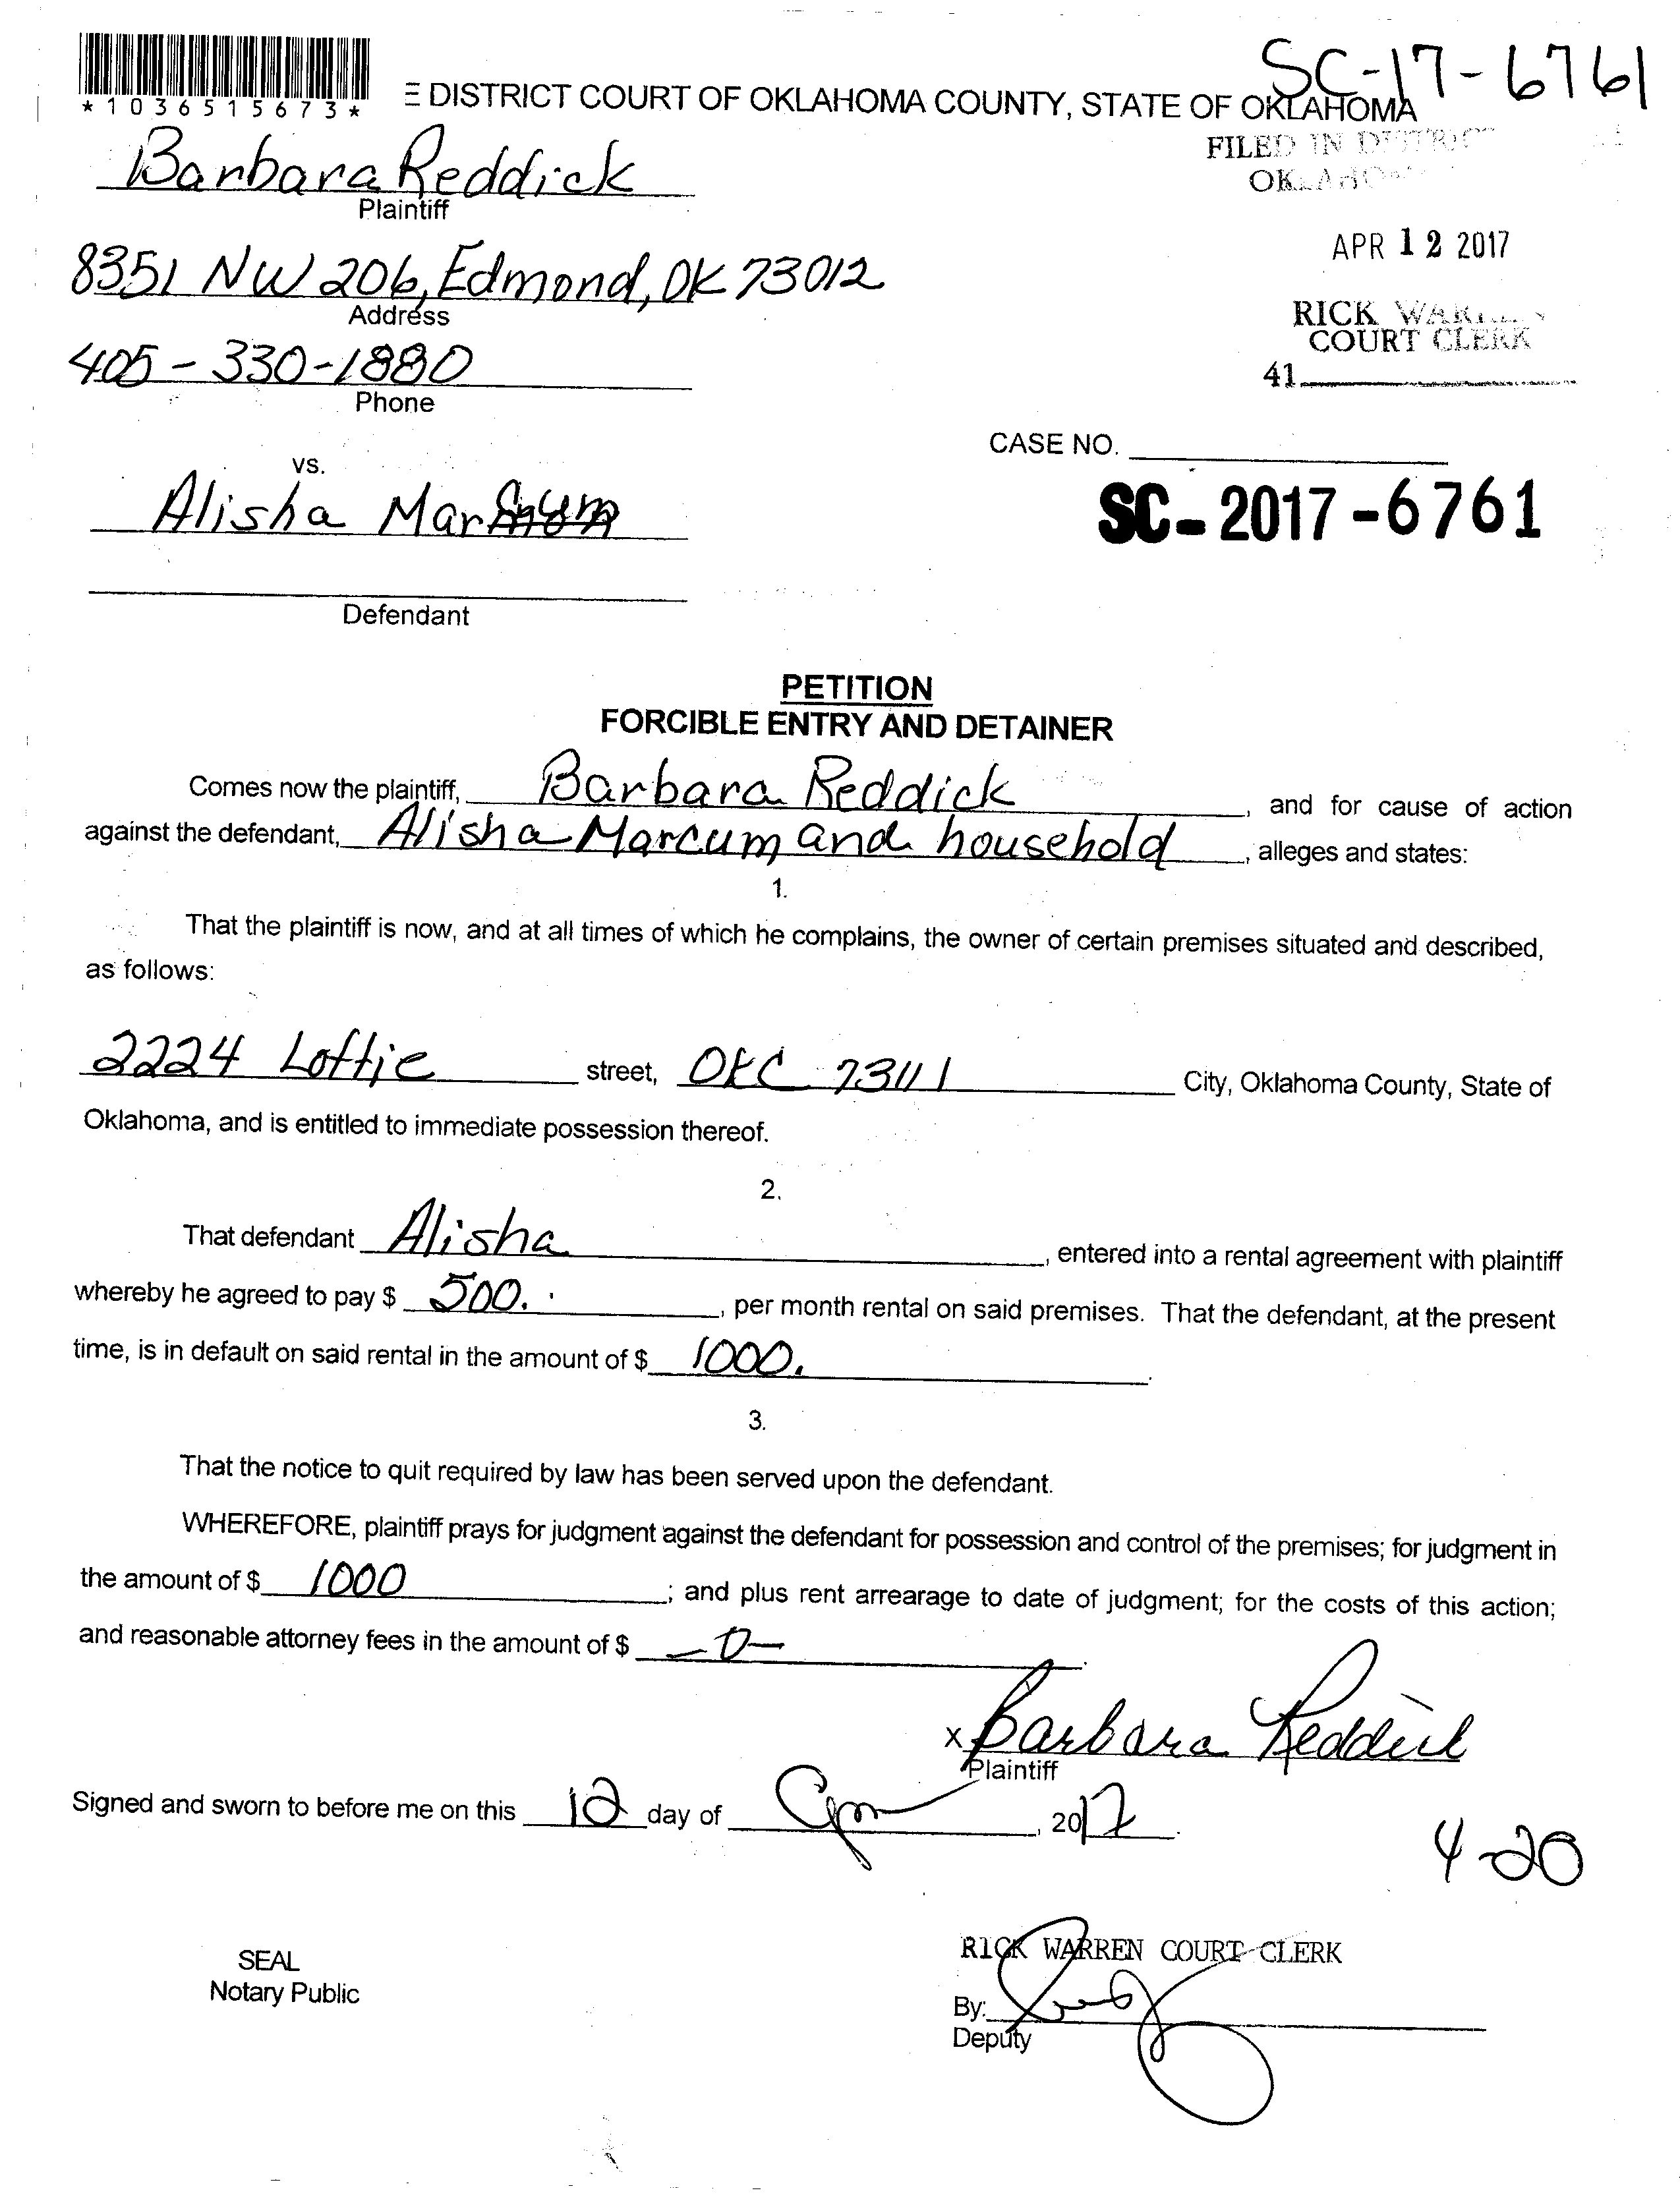 SC-17-6761
*1036515673*
DISTRICT COURT OF OKLAHOMA COUNTY, STATE OF OKLAHOMA
FILED IN
Barbara Reddick
Plaintiff
APR 12 2017
8351 NW 206, Edmond, OK 73012
Address
RICK
COURT CLERK
405-330-1880
Phone
41
CASE NO.
vs.
Alisha
SC-2017-6761
Defendant
PETITION
FORCIBLE ENTRY AND DETAINER
Comes now the plaintiff, Barbara Reddick, and for cause of action
against the defendant, Alisha Marcum and household, alleges and states:
1.
That the plaintiff is now, and at all times of which he complains, the owner of certain premises situated and described,
as follows:
2224 Lottie street, OKC 73111 City, Oklahoma County, State of
Oklahoma, and is entitled to immediate possession thereof.
2.
That defendant Alisha, entered into a rental agreement with plaintiff
whereby he agreed to pay $ 500., per month rental on said premises. That the defendant, at the present
time, is in default on said rental in the amount of $ 1000.
3.
That the notice to quit required by law has been served upon the defendant.
WHEREFORE, plaintiff prays for judgment against the defendant for possession and control of the premises; for judgment in
the amount of $ 1000; and plus rent arrearage to date of judgment; for the costs of this action;
and reasonable attorney fees in the amount of $ -0-.
x Barbara Reddick
Plaintiff
Signed and sworn to before me on this 12 day of Apr, 2017.
4-20
SEAL
Notary Public
RICK WARREN COURT CLERK
By:
Deputy